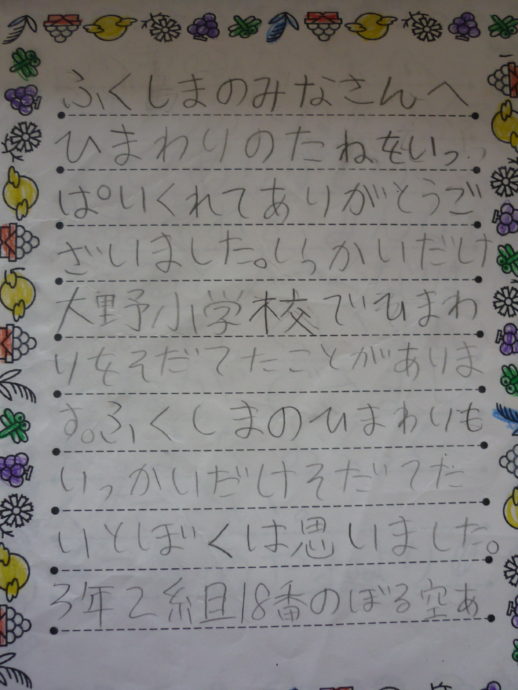 ふくしまのみなさんへ
ひまわりのたねをいっ
ぱいくれてありがとうご
ざいました。いっかいだけ
大野小学校でひまわ
りをそだてたことがありま
す。ふくしまのひまわりも
いっかいだけそだてた
いとぼくは思いました。
3年2組18番のぼる空あ